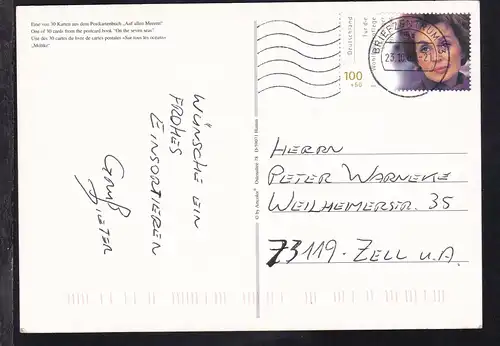 Eine von 30 Karten aus dem Postkartenbuch „Auf allen Meeren"
One of 30 cards from the postcard book "On the seven seas"
Une des 30 cartes du livre de cartes postales «Sur tous les océans»
„Moltke"
WÜNSCHE EIN
FROHES
EINSORTIEREN
GRUß
DIETER
Deutschland
für die
100
+50
BRIEFZENTRUM
HERRN
PETER WARNEKE
WEILHEIMERSTR. 35
73119-ZELL U.A.